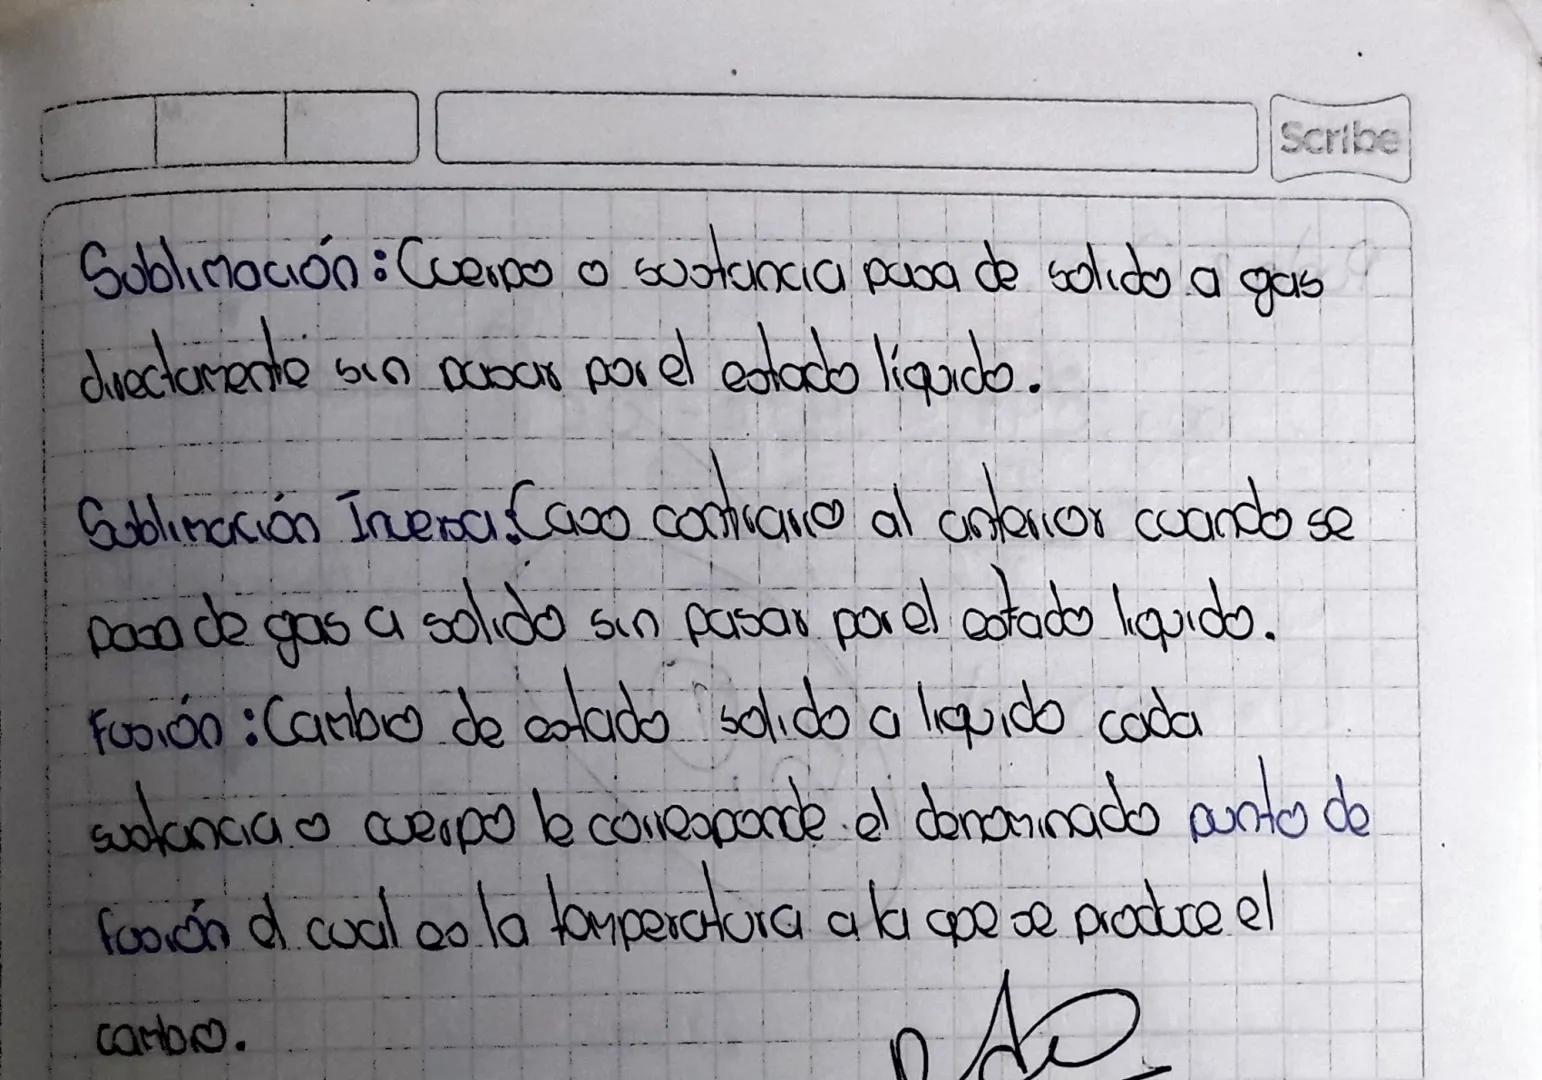 Scribe
Sublimación: Cuerpo o sustancia pasa de solido a gas
directamente sin pasar por el estado líquido.
Sublimación Inversa: Caso contrario al anterior cuando se
pasa de gas a solido sin pasar por el estado liquido.
Fusión: Cambio de estado solido a liquido cada
sustancia o cuerpo le corresponde el denominado punto de
fusión el cual es la temperatura a la que se produce el
cambio.